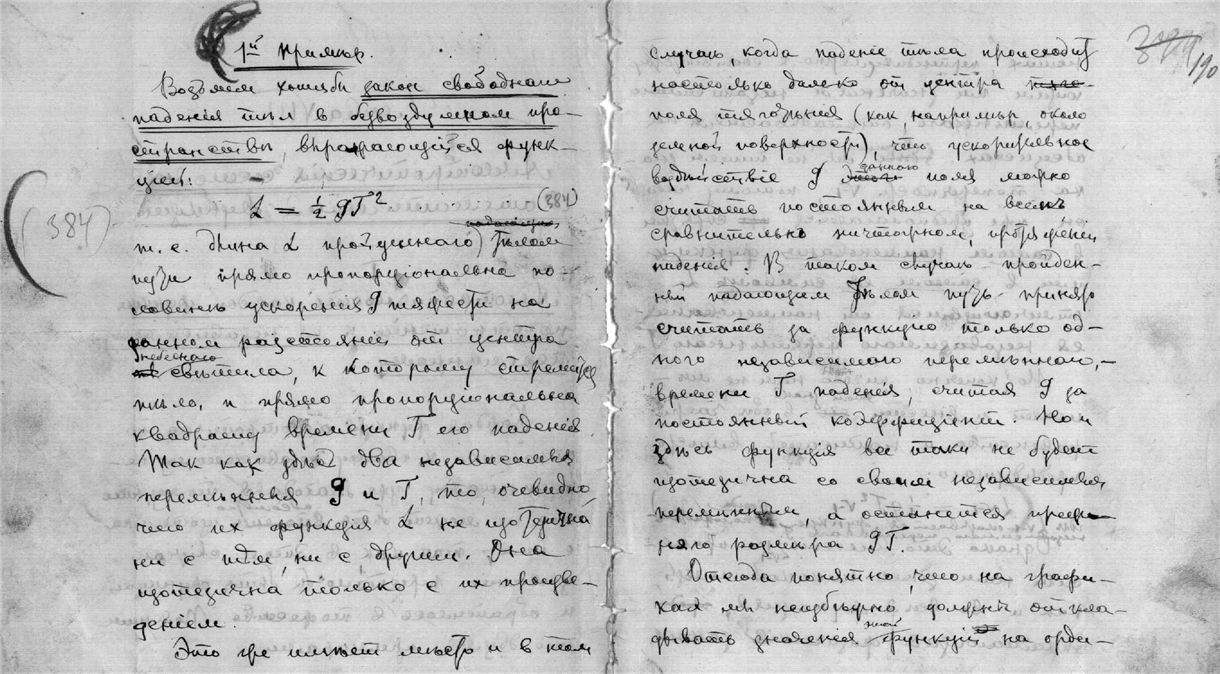 1й примѣр.
Возьмем хотябы закон свободнаго
паденія тѣл в безвоздушном про-
странствѣ, выражающійся функ-
ціей:
L = ½ gT² (384)
(384)
т. е. длина L пройденнаго тѣлом
пути прямо пропорціональна по-
ловинѣ ускоренія g тяжести на
данном разстояніи от центра
небеснаго
свѣтила, к которому стремится
тѣло, и прямо пропорціональна
квадрату времени T его паденія.
Так как здѣсь два независимыя
перемѣнныя g и T, то, очевидно,
что их функція L не изотетична
ни с тѣм, ни с другим. Она
изотетична только с их произве-
деніем.
Это же имѣет мѣсто и в том
190
случаѣ, когда паденіе тѣла происходит
настолько далеко от центра
поля тяготѣнія (как, напримѣр, около
земной поверхности), что ускорительное
воздѣйствіе g даннаго поля можно
считать постоянным на всем
сравнительно ничтожном, протяженіи
паденія. В таком случаѣ пройден-
ный падающим тѣлом путь принято
считать за функцию только од-
ного независимаго перемѣннаго, –
времени T паденія, считая g за
постоянный коэффиціент. Но и
здѣсь функція все таки не будет
изотетична со своим независимым
перемѣнным, а останется преж-
няго размѣра gT.
Отсюда понятно, что на графи-
ках мы неизбѣжно должны откла-
дывать значенія этой функціи на орди-